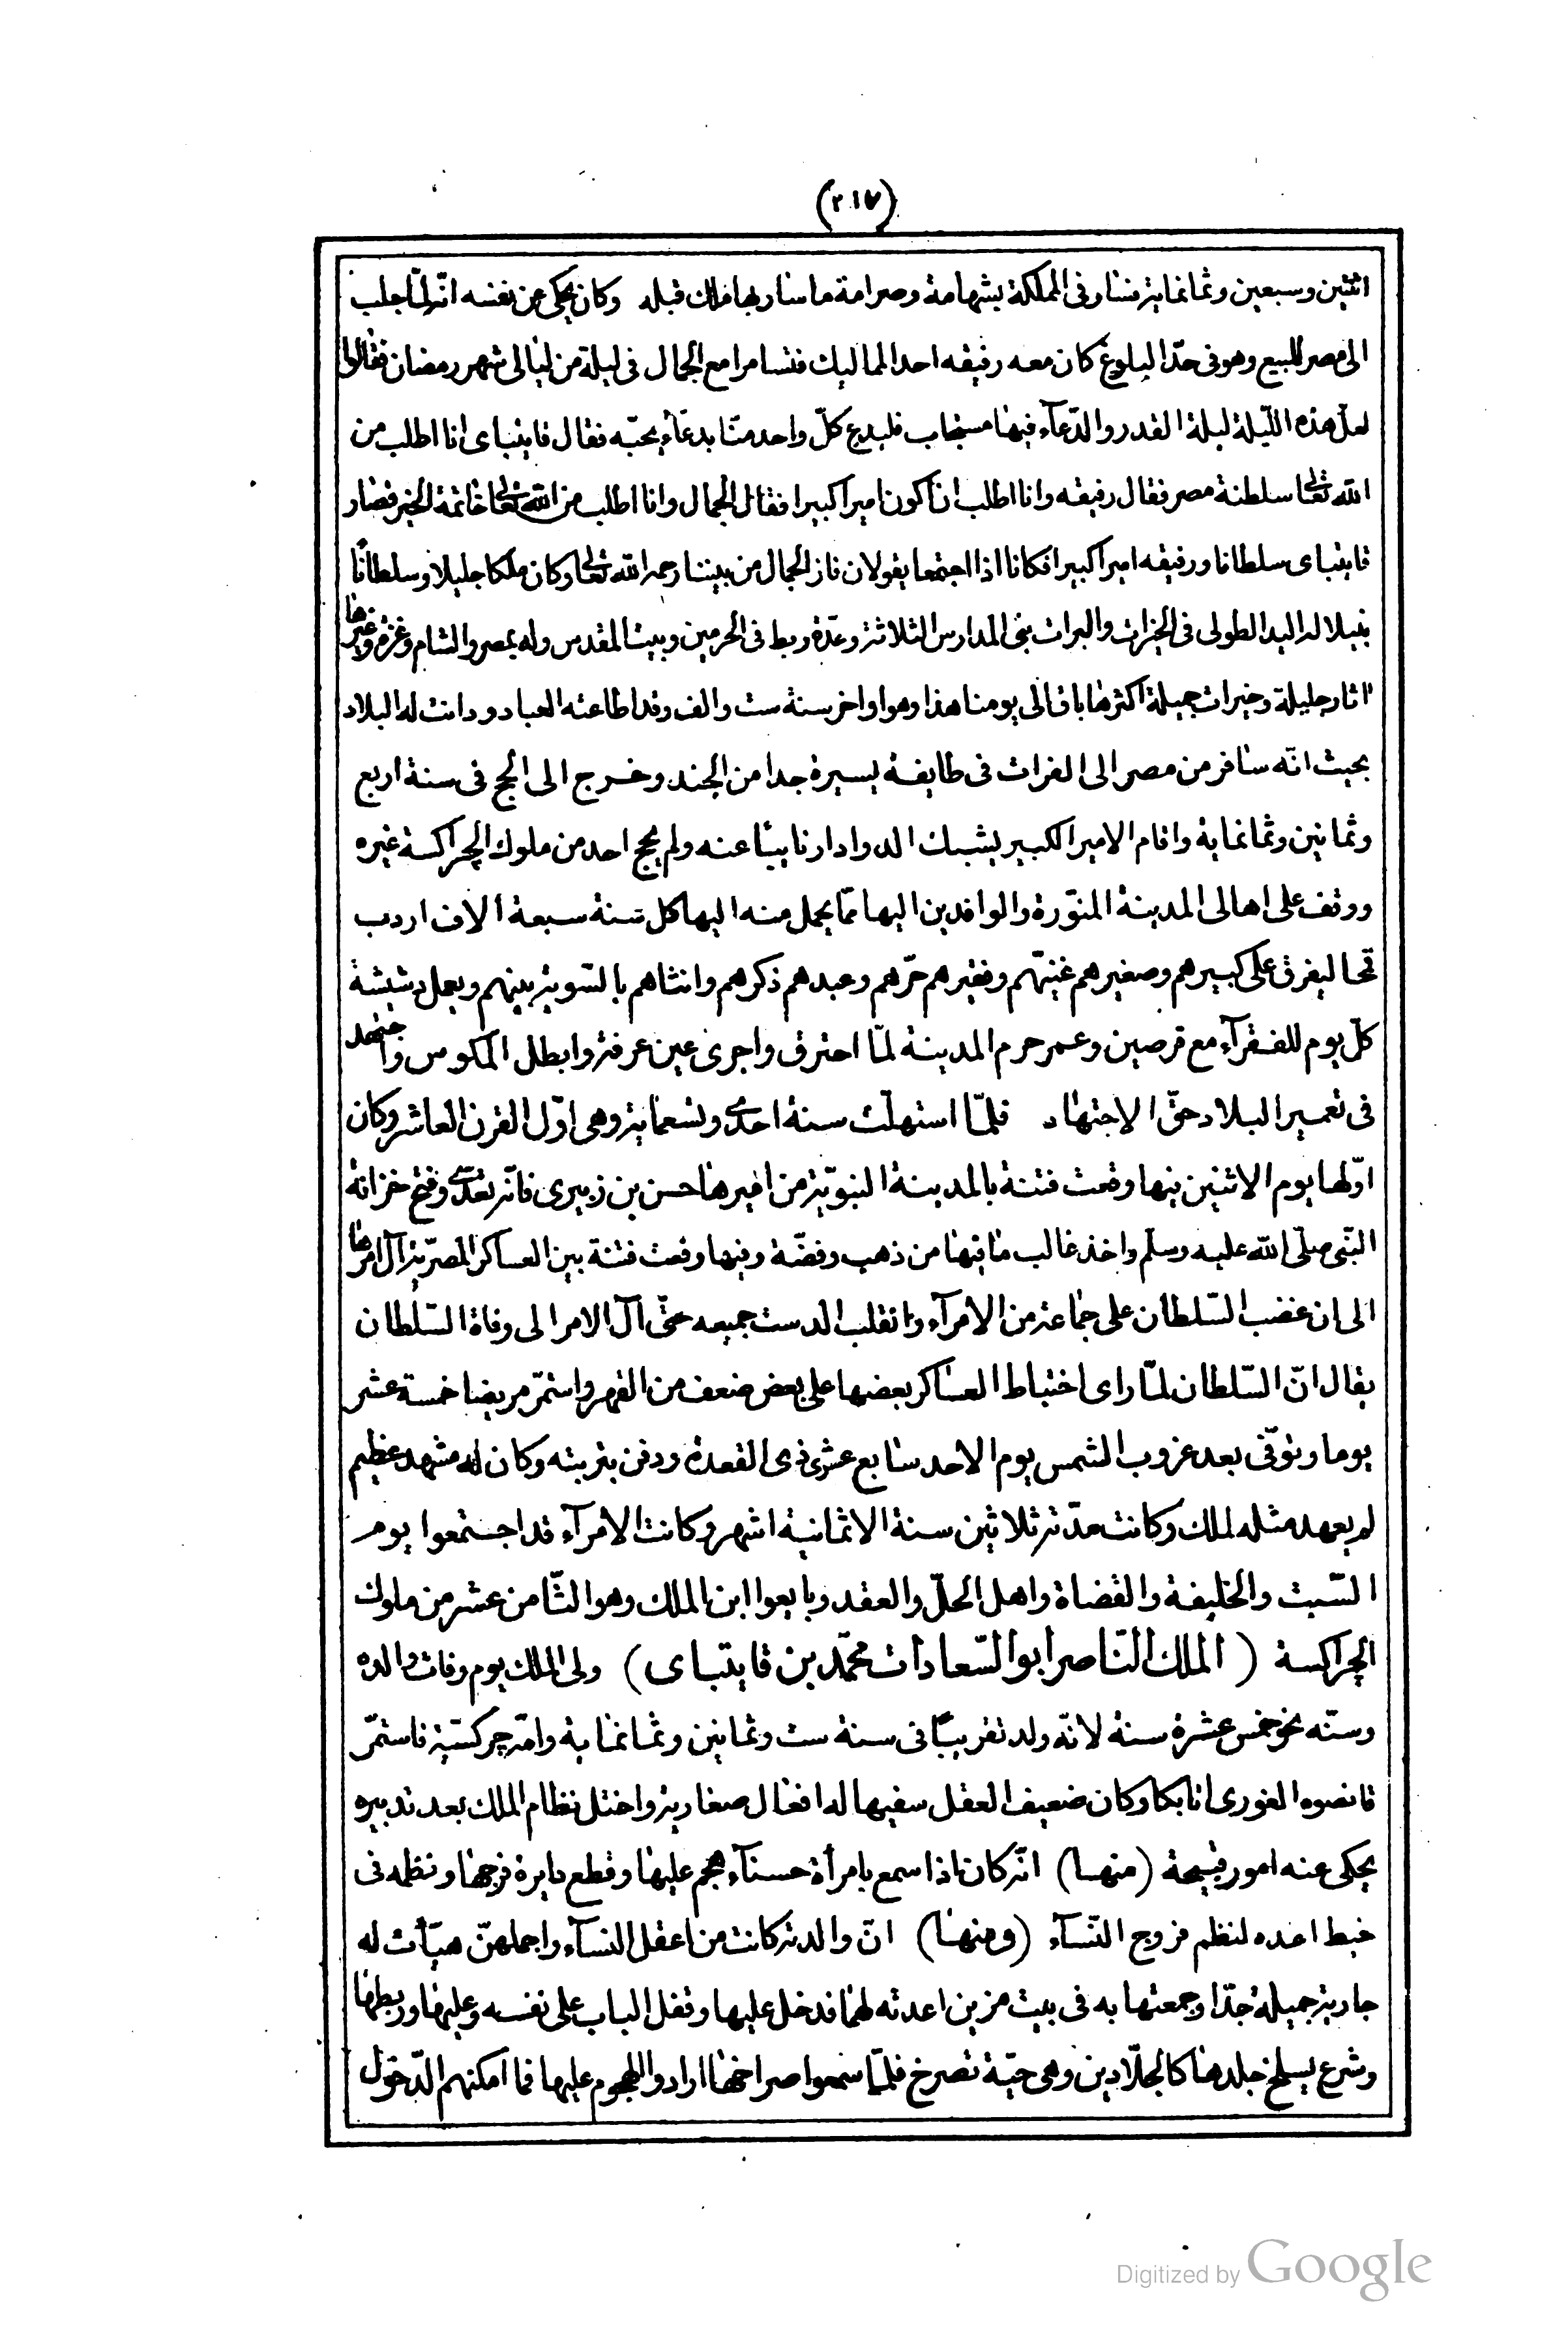 (٢١٧)
اثنتين وسبعين وثمانماية فسار فى المملكة بشهامة وصرامة ما سار بها ملك قبله وكان يحكى عن نفسه انّه لمّا جلب
الى مصر للبيع وهو فى حدّ البلوغ كان معه رفيقه احد المماليك فتسامرا مع الجمال فى ليلة من ليالى شهر رمضان فقالوا
لعلّ هذه اللّيلة ليلة القدر والدّعآء فيها مستجاب فليدع كلّ واحد منّا بدعآء يحبّه فقال قايتباى انا اطلب من
الله تعالى سلطنة مصر فقال رفيقه وانا اطلب ان اكون اميرا كبيرا فقال الجمال وانا اطلب من الله تعالى خاتمة الخير فصار
قايتباى سلطانا ورفيقه اميرا كبيرا فكانا اذا اجتمعا يقولان فاز الجمال من بيننا رحمه الله تعالى وكان ملكا جليلا وسلطانًا
نبيلا له اليد الطولى فى الخيرات والمبرات بنى المدارس الثلاثة وعدّة ربط فى الحرمين وبيت المقدس وله بمصر والشام وغزة وغيرها
اثار جليلة وخيرات جميلة اكثرها باق الى يومنا هذا وهو اواخر سنة ست والف وقد اطاعته العباد ودانت له البلاد
بحيث انّه سافر من مصر الى الفرات فى طايفة يسيرة جدا من الجند وخرج الى الحج فى سنة اربع
وثمانين وثمانماية واقام الامير الكبير يشبك الدوادار نايبًا عنه ولم يحج احد من ملوك الچراكسة غيره
ووقف على اهالى المدينة المنوّرة والوافدين اليها ممّا يحمل منه اليها كل سنة سبعة آلاف اردب
قمحا ليفرق على كبيرهم وصغيرهم غنيّهم وفقيرهم حرّهم وعبدهم ذكرهم وانثاهم بالتسوية بينهم ويعمل دشيشة
كلّ يوم للفقرآء مع قرصين وعمر حرم المدينة لمّا احترق واجرى عين عرفة وابطل المكوس واجتهد
فى تعمير البلاد حقّ الاجتهاد فلمّا استهلّت سنة احدى وتسعماية وهى اوّل القرن العاشر وكان
اوّلها يوم الاثنين فيها وقعت فتنة بالمدينة النبويّة من اميرها حسن بن زبيرى فانّه تعدّى وفتح خزانة
النبّى صلّى الله عليه وسلّم واخذ غالب ما فيها من ذهب وفضّة وفيها وقعت فتنة بين العساكر المصريّة آل امرها
الى ان غضب السّلطان على جماعة من الامرآء وانقلب الدست جميعه حتّى آل الامر الى وفاة السّلطان
يقال انّ السّلطان لمّا راى اختباط العساكر بعضها على بعض ضعف من القهر واستمرّ مريضا خمسة عشر
يوما وتوفّى بعد غروب الشمس يوم الاحد سابع عشرى ذى القعدة ودفن بتربته وكان له مشهد عظيم
لم يعهد مثله لملك وكانت مدّته ثلاثين سنة الا ثمانية اشهر وكانت الامرآء قد اجتمعوا يوم
السّبت والخليفة والقضاة واهل الحلّ والعقد وبايعوا ابن الملك وهو الثّامن عشر من ملوك
الچراكسة (الملك النّاصر ابو السّعادات محمّد بن قايتباى) ولى الملك يوم وفات والده
وسنّه نحو خمس عشرة سنة لانّه ولد تقريبًا فى سنة ست وثمانين وثمانماية وامّه چركسّية فاستمّر
قانصوه الغورى اتابكا وكان ضعيف العقل سفيها له افعال صغارية واختل نظام الملك بعد تدبيره
يحكى عنه امور قبيحة (منها) انّه كان اذا سمع بامرأة حسنآء هجم عليها وقطع دايرة فرجها ونظمه فى
خيط اعده لنظم فروج النّسآء (ومنها) انّ والدته كانت من اعقل النسآء واجملهنّ هيّأت له
جارية جميلة جدّا وجمعتها به فى بيت مزين اعدته لهما فدخل عليها وقفل الباب على نفسه وعليها وربطها
وشرع يسلخ جلدها كالجلّادين وهى حيّة تصرخ فلمّا سمعوا صراخها ارادوا الهجوم عليها فما امكنهم الدّخول
Digitized by Google